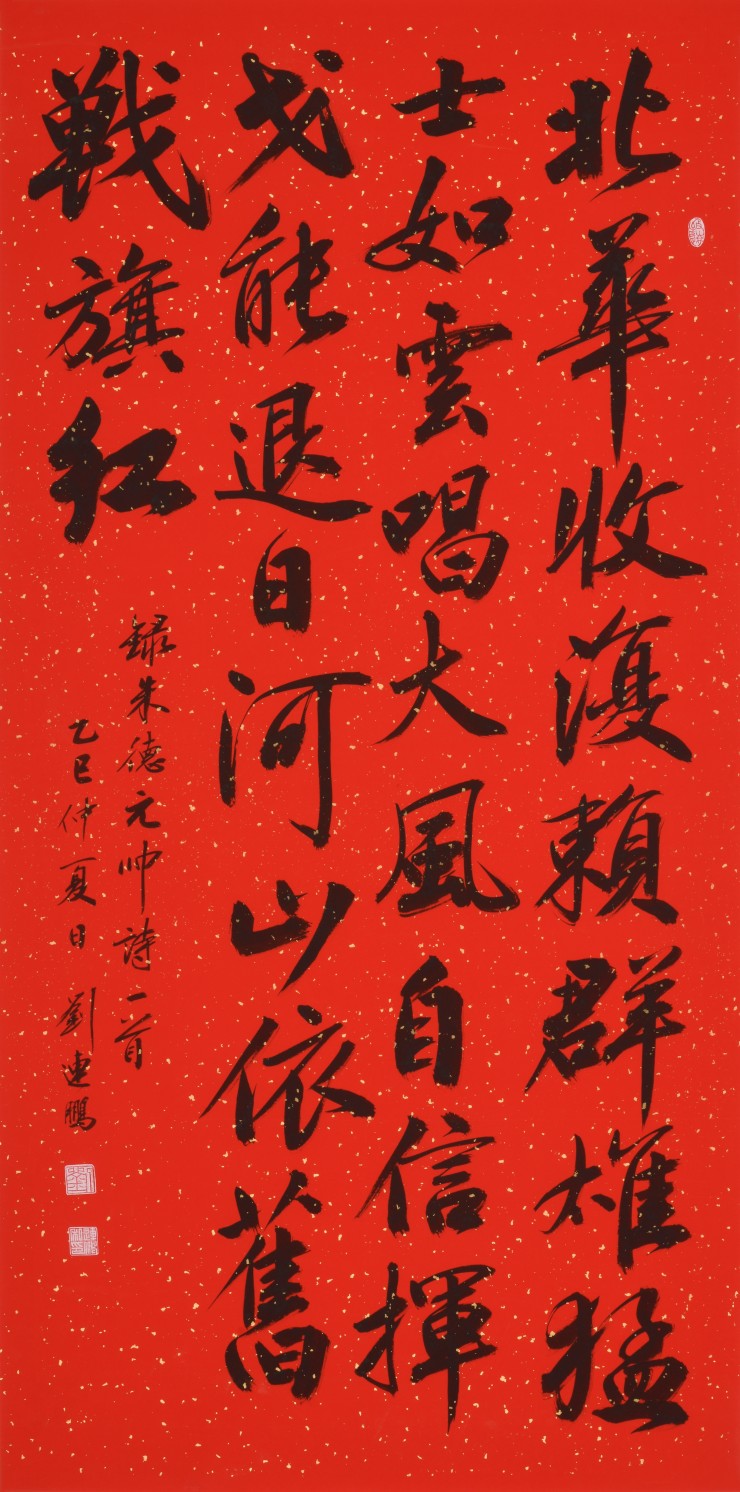 北華收復賴群雄猛
士如雲唱大風自信揮
戈能退日河山依舊
戰旗紅
録朱德元帥詩一首
乙巳仲夏日劉連鵬